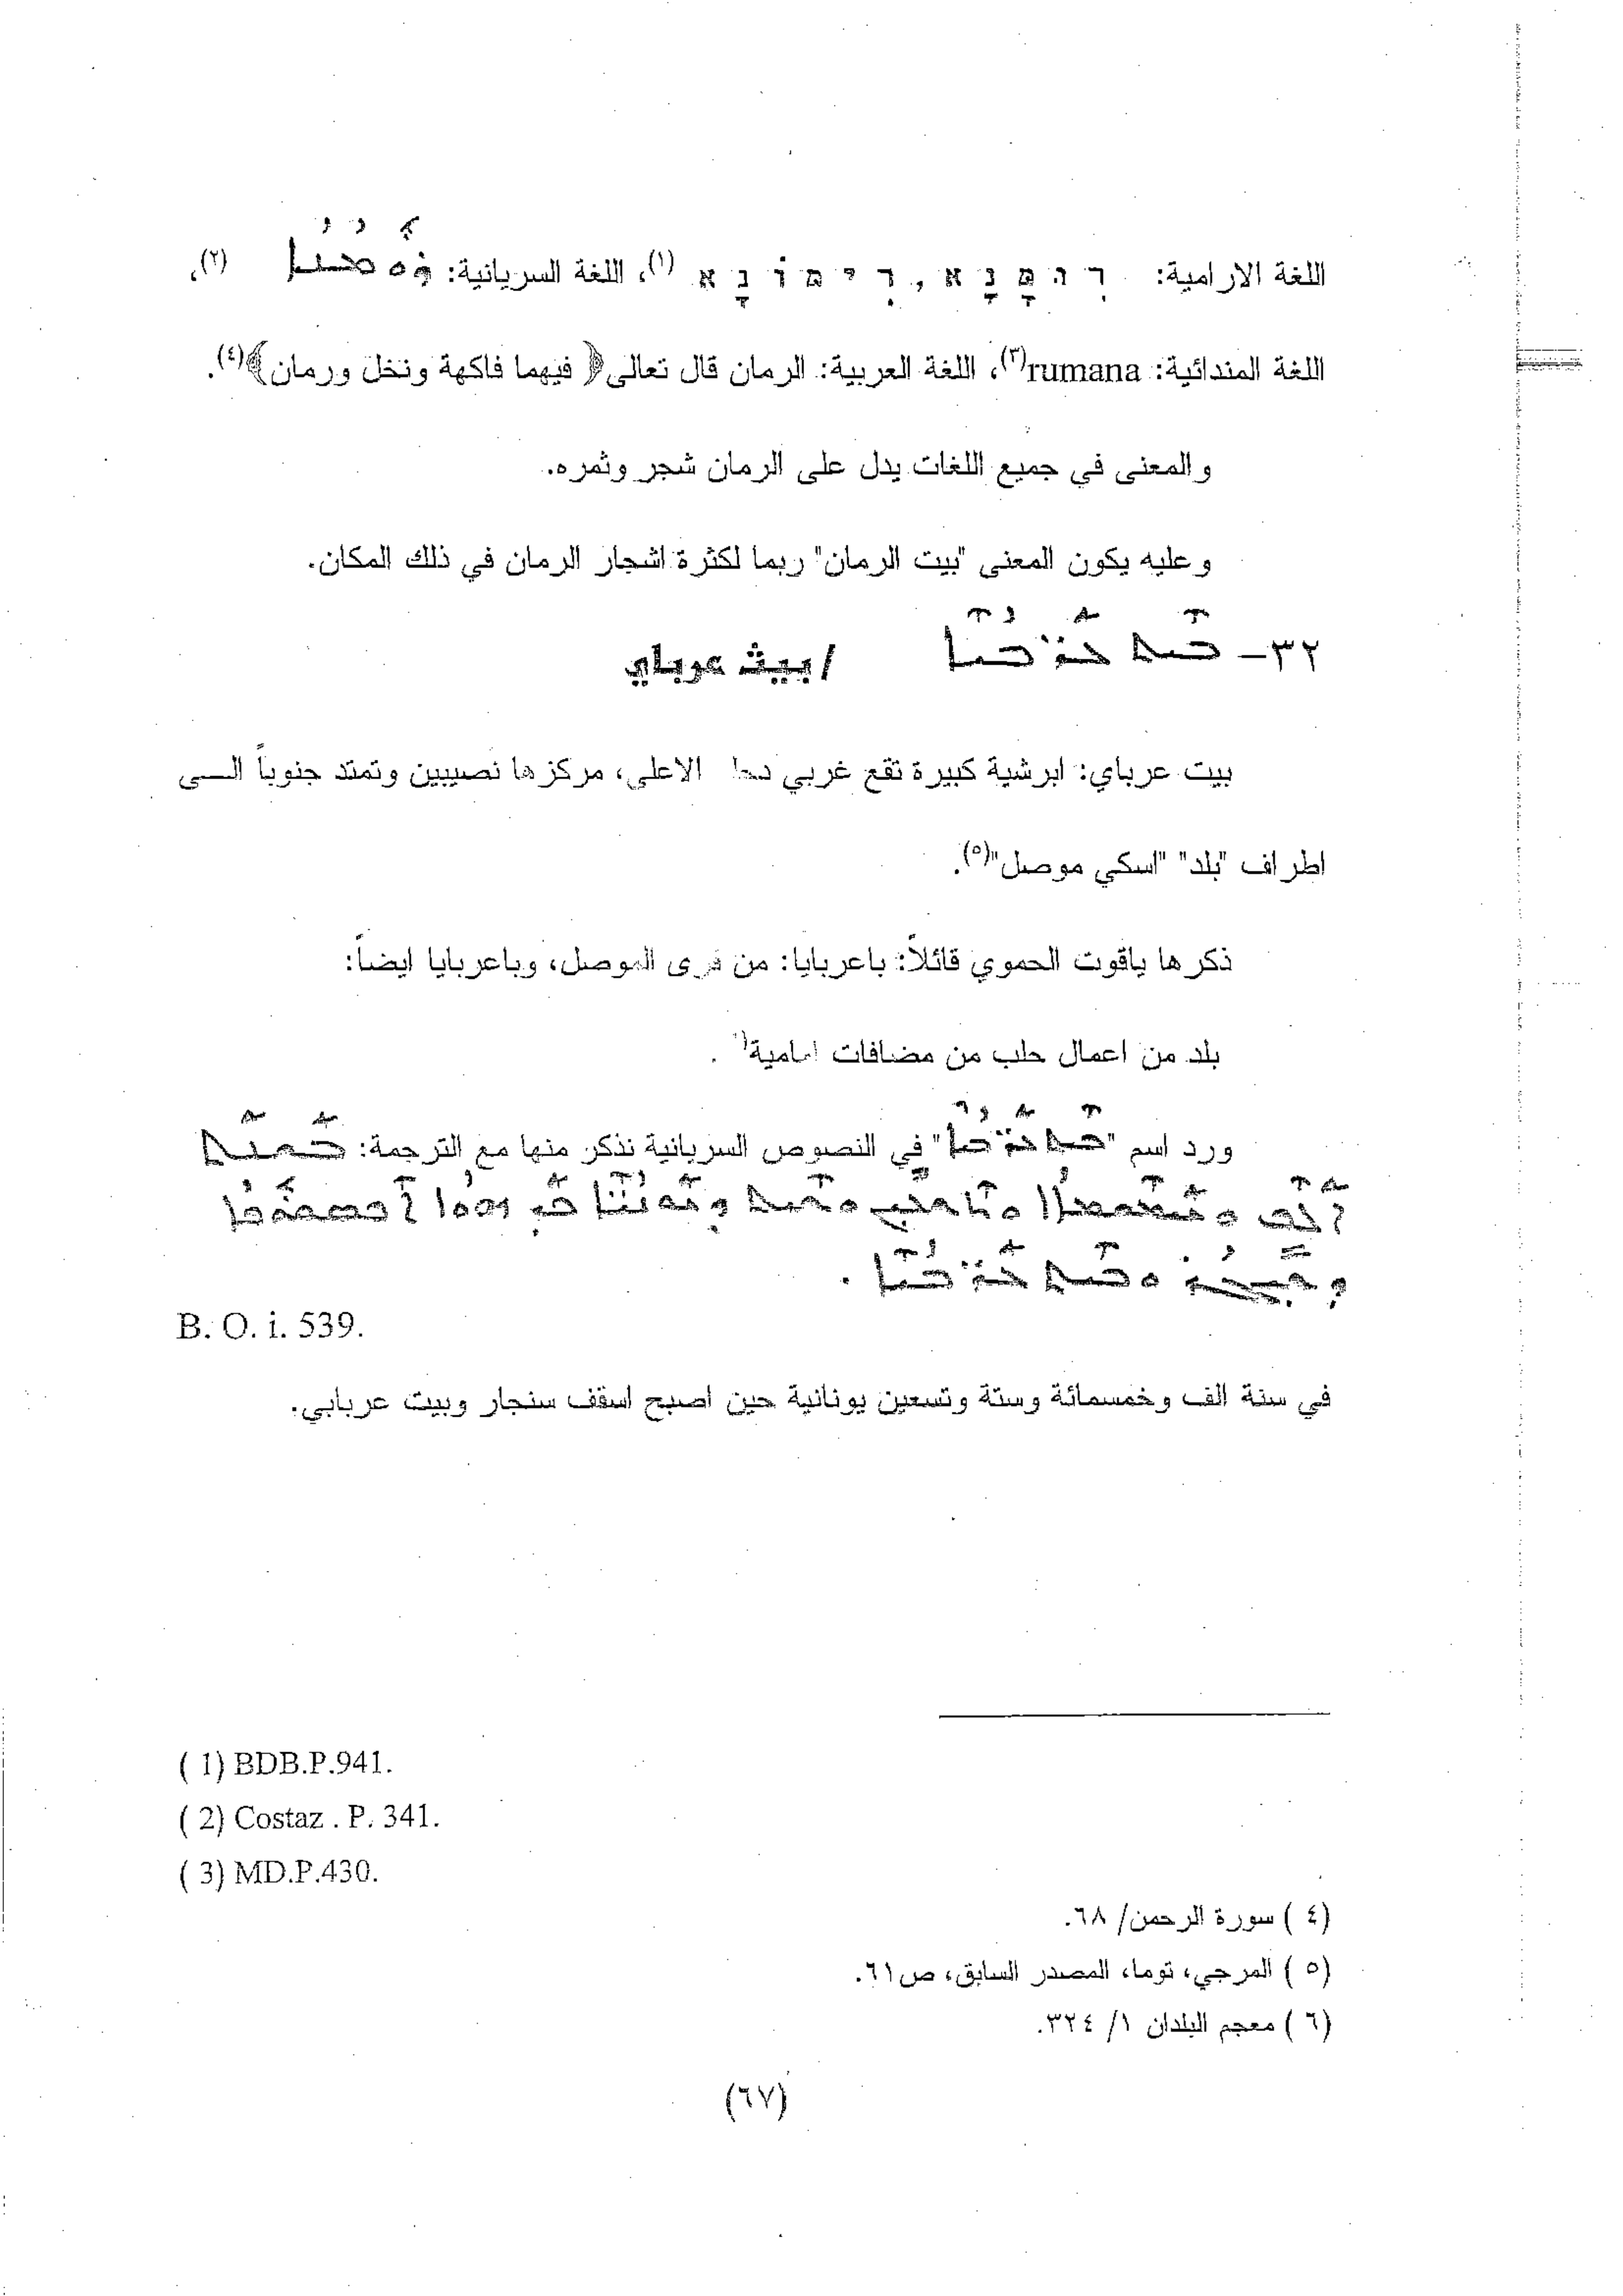 اللغة الارامية: רִ מָּנָא , רִימוֹנָא (١)، اللغة السريانية: ܪܘܡܢܐ (٢)،
اللغة المندائية: rumana(٣)، اللغة العربية: الرمان قال تعالى﴿ فيهما فاكهة ونخل ورمان﴾(٤).
والمعنى في جميع اللغات يدل على الرمان شجر وثمره.
وعليه يكون المعنى "بيت الرمان" ربما لكثرة اشجار الرمان في ذلك المكان.
٣٢– ܒܝܬ ܥܪ̈ܒܝܐ /بيث عرباي
بيت عرباي: ابرشية كبيرة تقع غربي الاعلى، مركزها نصيبين وتمتد جنوباً الـــى
اطراف "بلد" "اسكي موصل"(٥).
ذكرها ياقوت الحموي قائلاً: باعربايا: من قرى الموصل، وباعربايا ايضاً:
بلد من اعمال حلب من مضافات
ورد اسم "ܒܝܬ ܥܪ̈ܒܝܐ" في النصوص السريانية نذكر منها مع الترجمة: ܒܫܢܬ
ܐܠܦ ܘܚܡܫܡܐܐ ܘܬܫܥܝܢ ܘܫܬ ܕܝܘܢܝܐ ܟܕ ܗܘܐ ܐܦܣܩܘܦܐ
ܕܫܝܓܪ ܘܒܝܬ ܥܪ̈ܒܝܐ .
B. O. i. 539.
في سنة الف وخمسمائة وستة وتسعين يونانية حين اصبح اسقف سنجار وبيت عربابي.
( 1) BDB.P.941.
( 2) Costaz . P. 341.
( 3) MD.P.430.
(٤ ) سورة الرحمن/ ٦٨.
(٥ ) المرجي، توما، المصدر السابق، ص٦١.
(٦ ) معجم البلدان ١/ ٣٢٤.
(٦٧)